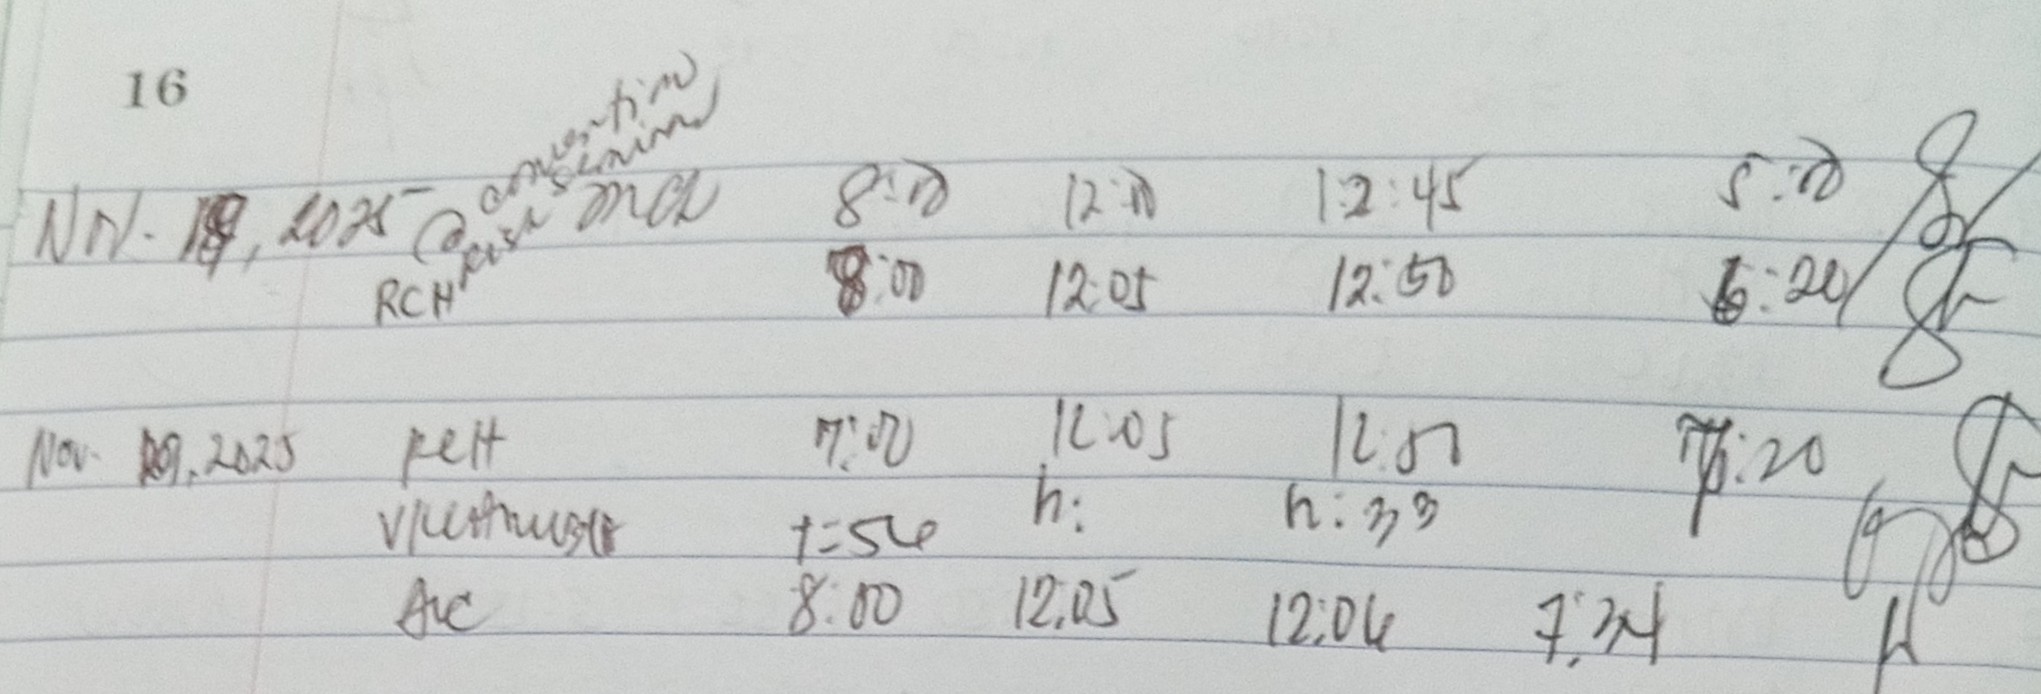 16
Nov. 18, 2025 @ convention seminar 8:00 12:00 12:45 5:00
RCH 8:00 12:05 12:50 6:20
Nov. 19, 2025 RCH 7:00 12:05 12:50 7:20
7:56 h: h:33
8:00 12:05 12:06 7:34